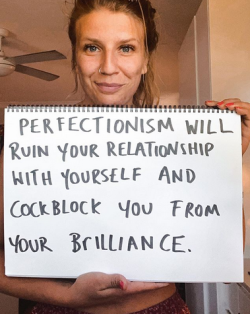 PERFECTIONISM WILL
RUIN YOUR RELATIONSHIP
WITH YOURSELF AND
COCKBLOCK YOU FROM
YOUR BRILLIANCE.